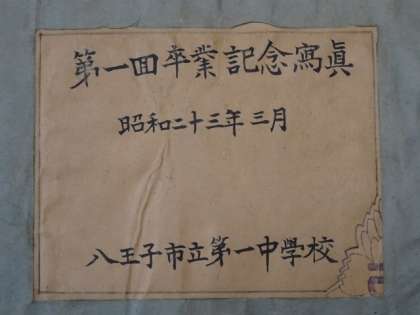 第一回卒業記念寫眞
昭和二十三年三月
八王子市立第一中學校